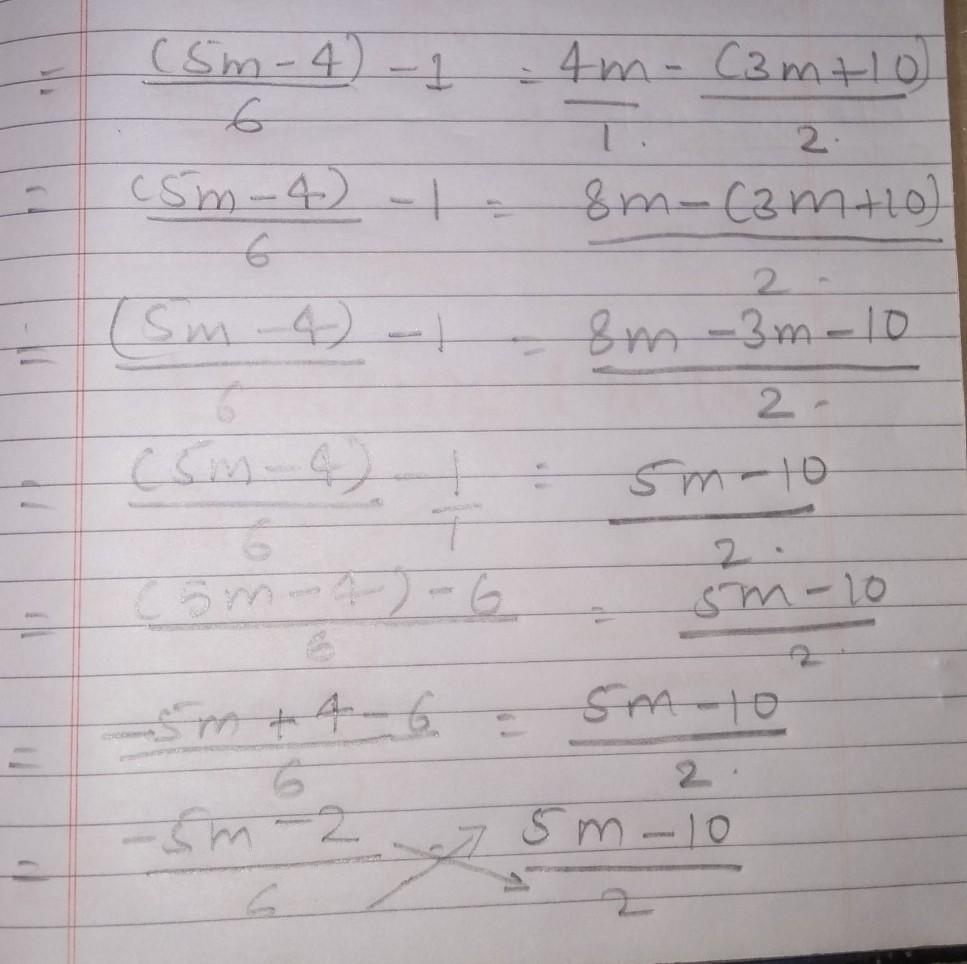 = (5m-4)/6 - 1 = 4m/1. - (3m+10)/2.
= (5m-4)/6 - 1 = 8m-(3m+10)/2.
= (5m-4)/6 - 1 = 8m-3m-10/2-
= (5m-4)/6 - 1/1 = 5m-10/2.
= (5m-4)-6/6 = 5m-10/2.
= -5m+4-6/6 = 5m-10/2.
= -5m-2/6 5m-10/2